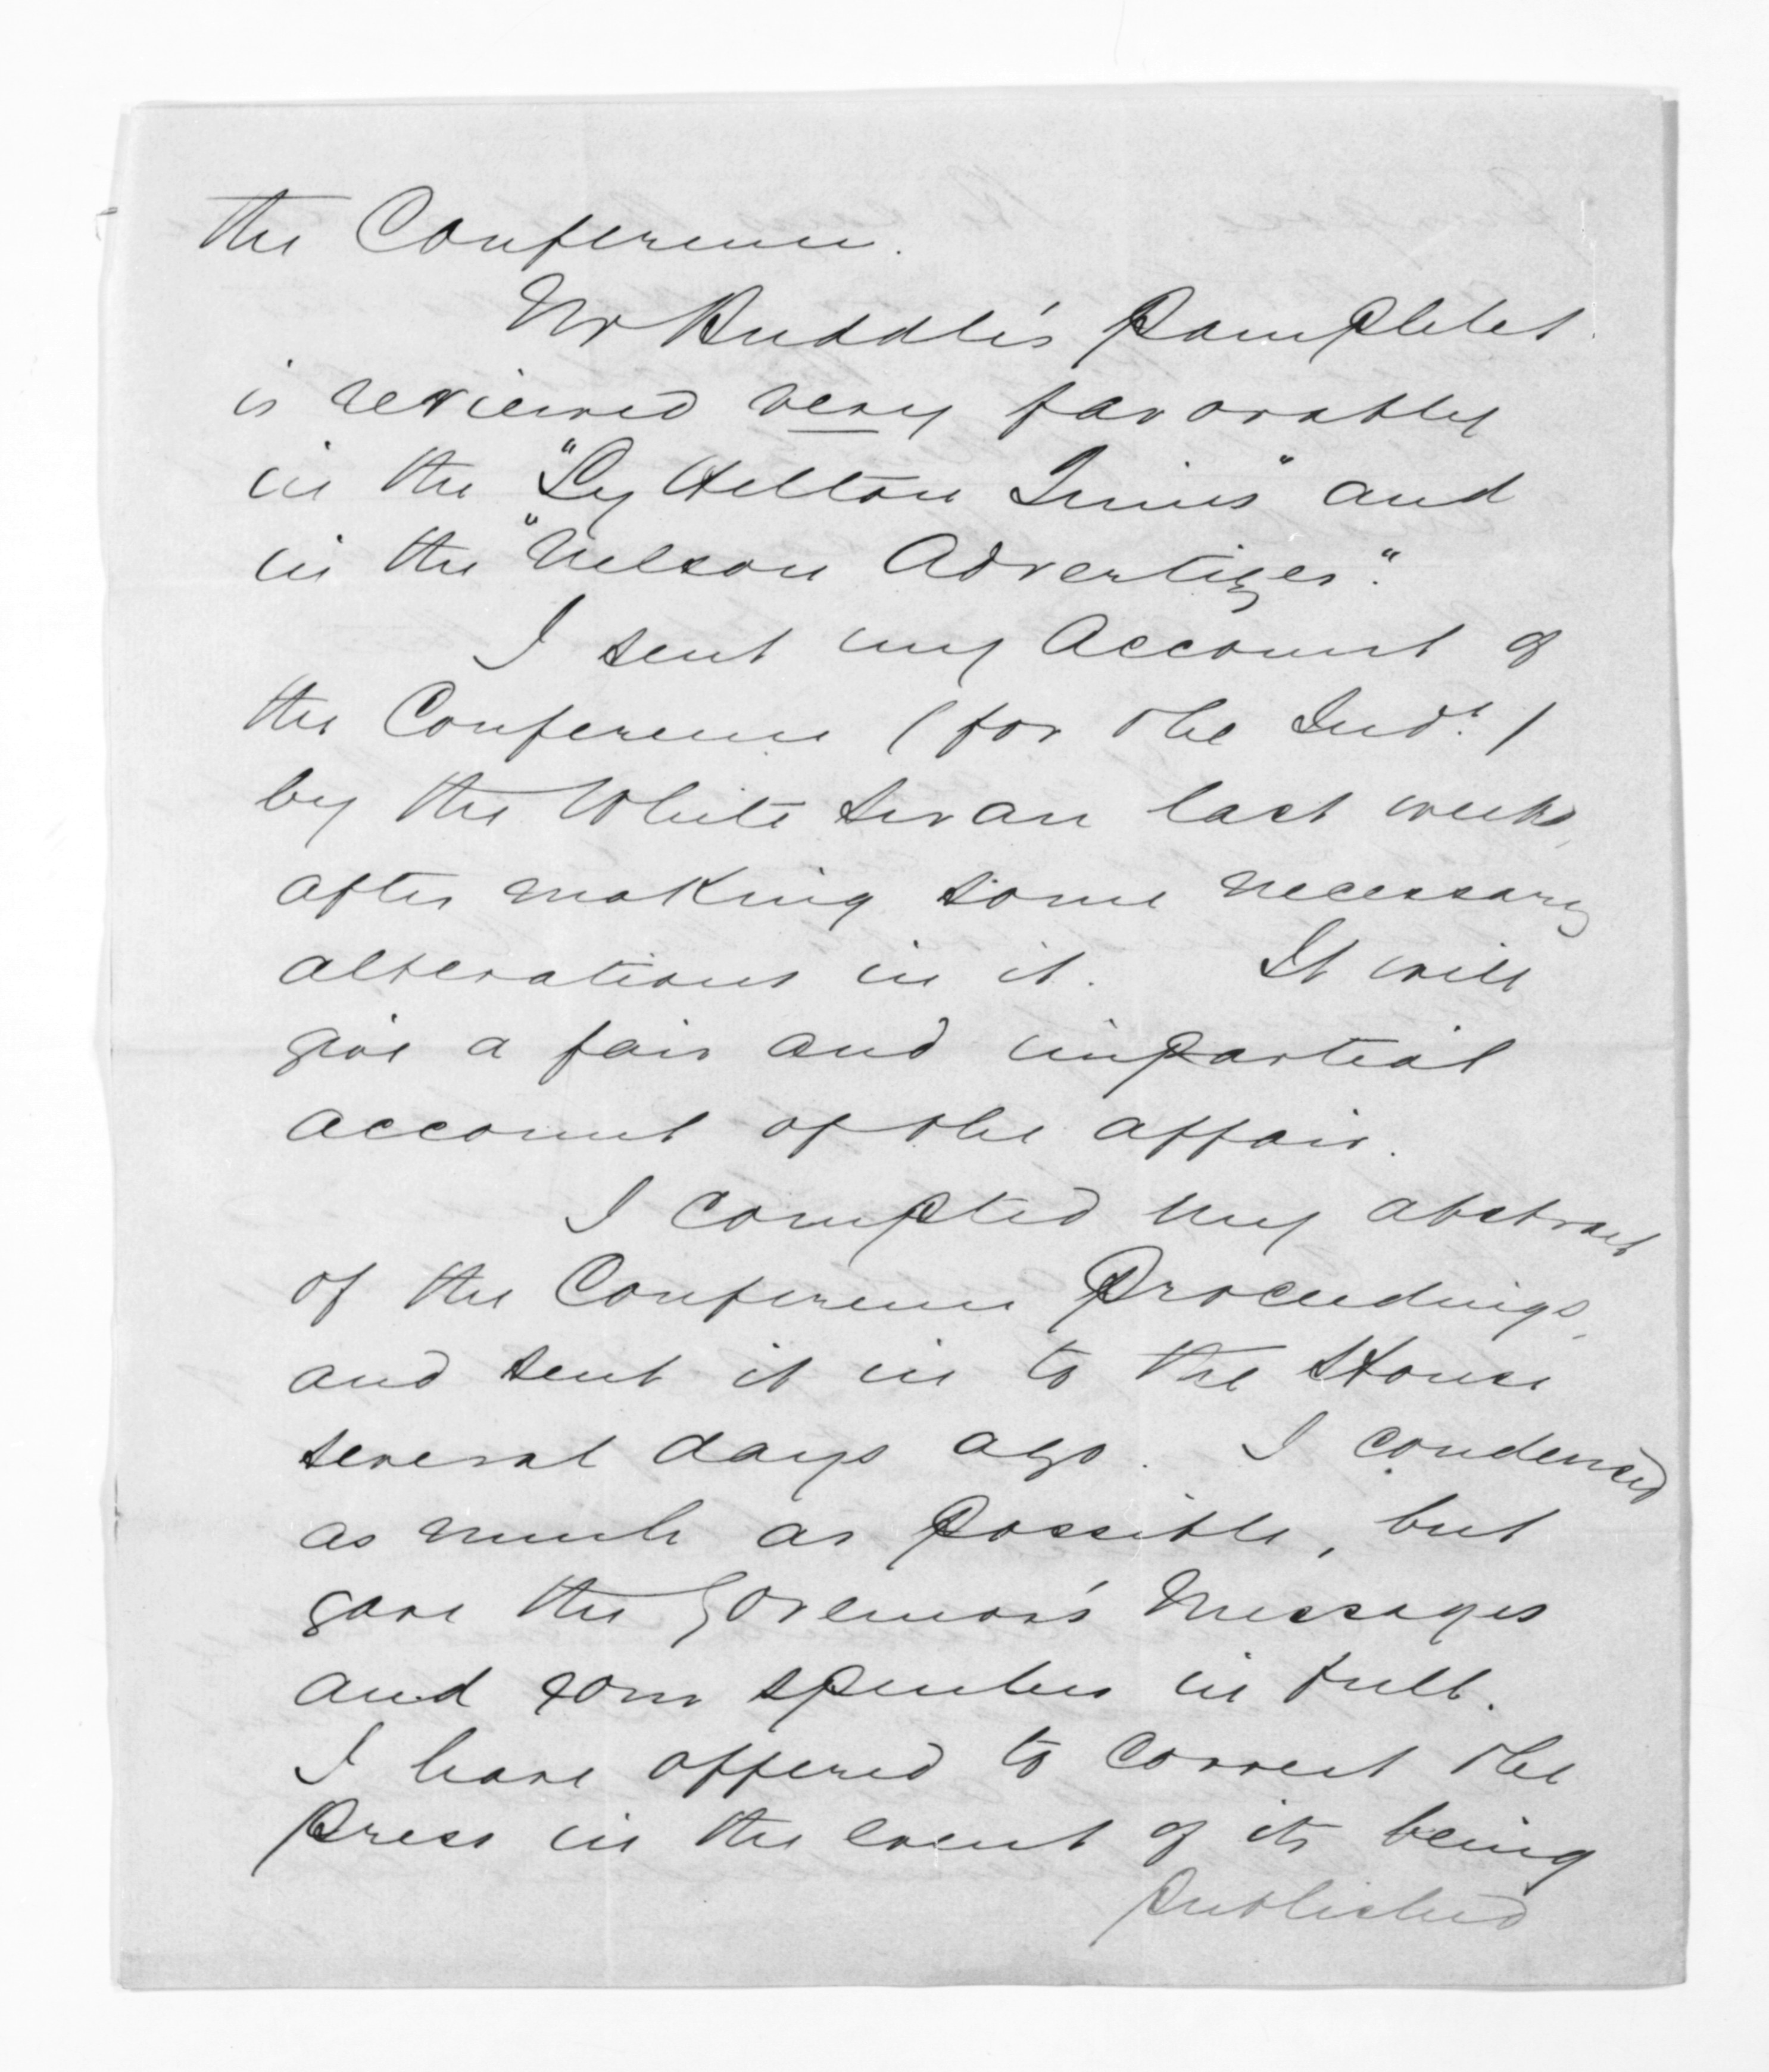 the Conference.
Mr Buddle's Pamphlet
is reviewed very favorably
in the "Lyttelton Times" and
in the "Nelson Advertizer".
I sent my Account of
the Conference (for the Indt.)
by the White Swan last week,
after making some necessary
alterations in it. It will
give a fair and impartial
account of the affair.
I compted my abstract
of the Conference Proceedings,
and sent it in to the House
several days ago. I condensed
as much as possible, but
gave the Governor's Messages
and your speeches in full.
I have offered to correct the
Press in the event of its being
published